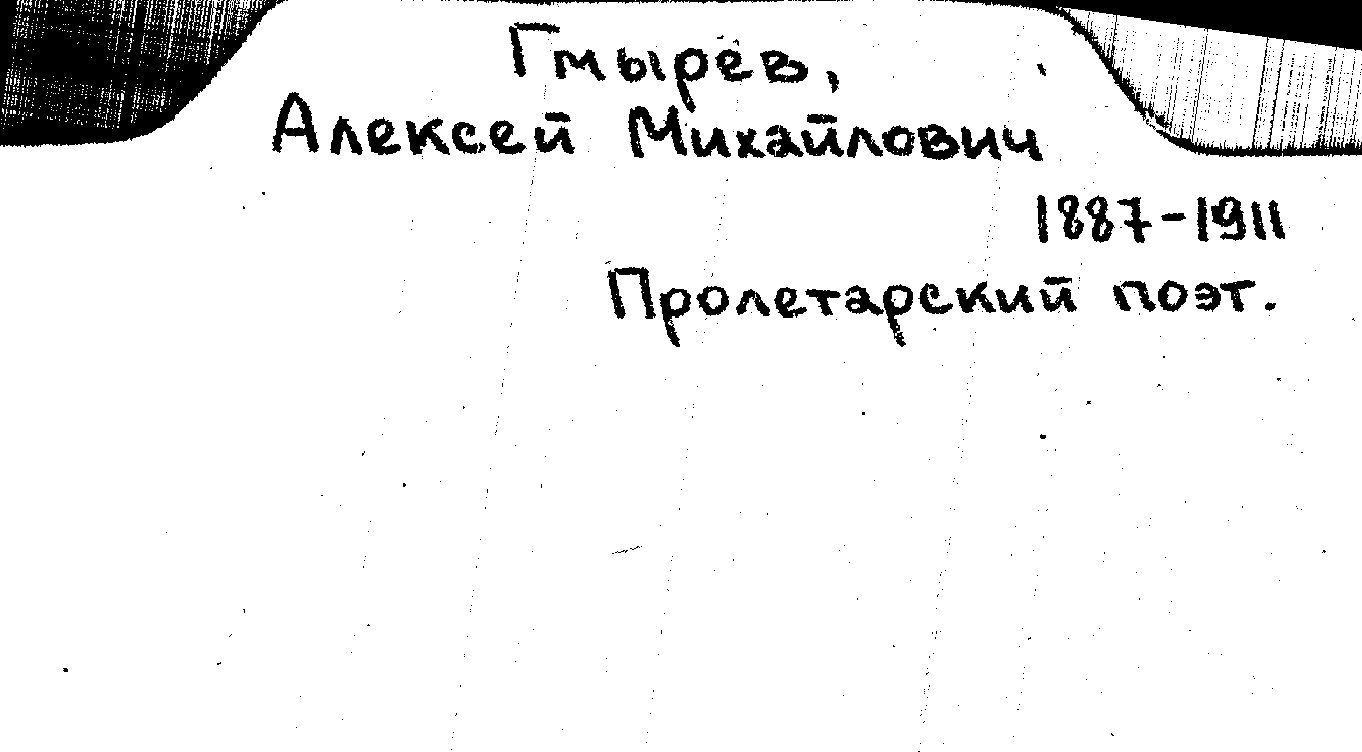 Гмырёв,
Алексей Михайлович
1887-1911
Пролетарский поэт.